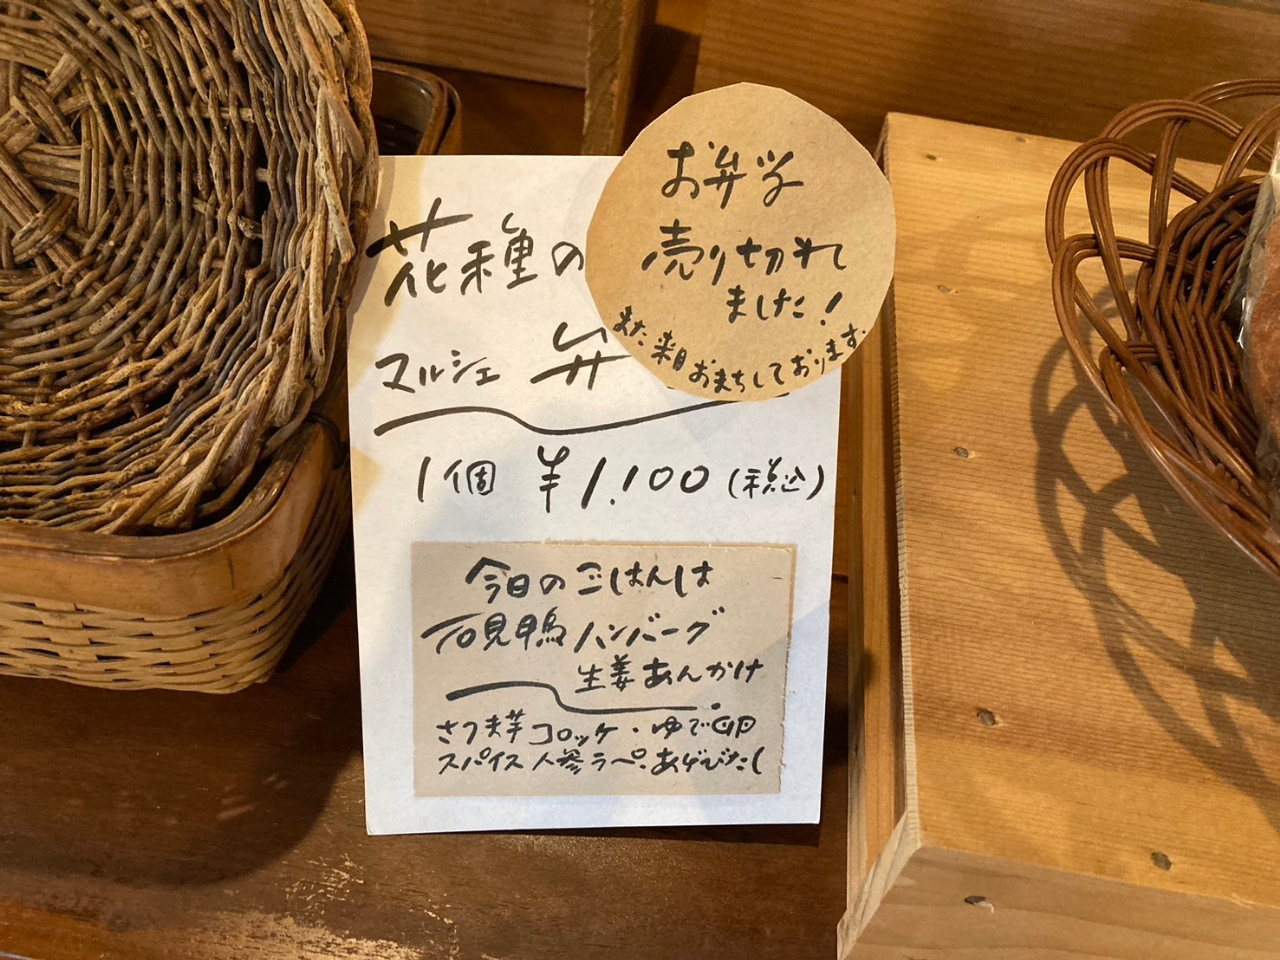 花種の
マルシェ 弁
お弁当
売り切れ
ました!
また来週おまちしております。
1個 ¥1,100 (税込)
今日のごはんは
石見鴨ハンバーグ
生姜あんかけ
さつま芋コロッケ・ゆで卵
スパイス人参ラペ・あげびたし